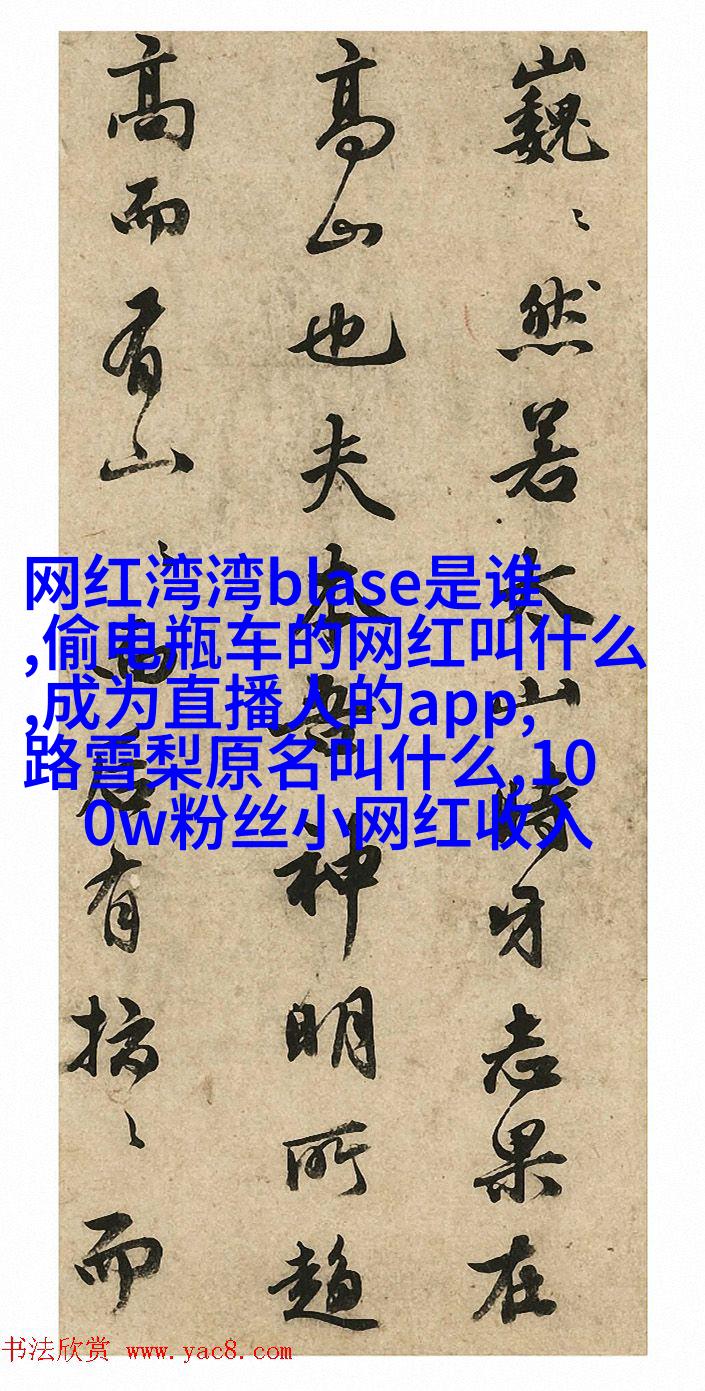 巍〻然若太山時牙志果在
高山也夫本吾神明所趨
高而有山〻而后有搞〻而
网红湾湾blase是谁
,偷电瓶车的网红叫什么
,成为直播人的app,
路雪梨原名叫什么,10
0w粉丝小网红收入
书法欣赏 www.yac8.com